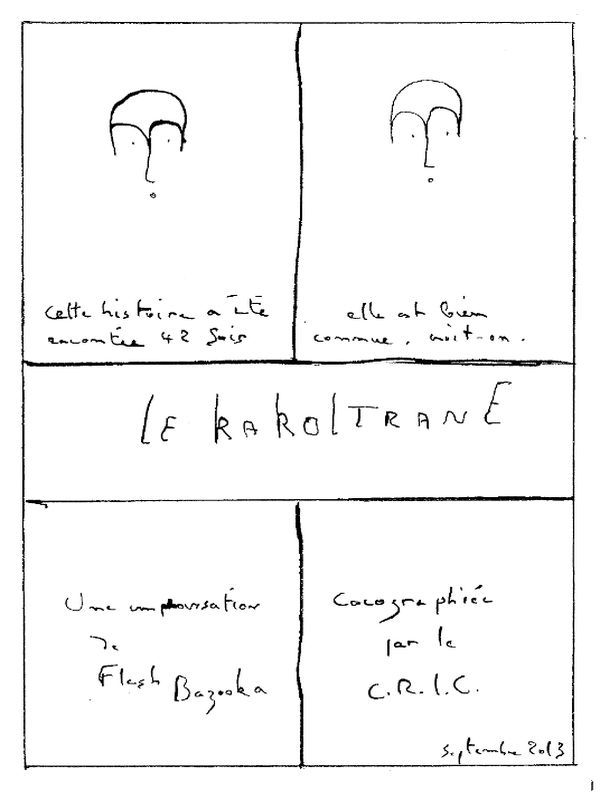 cette histoire a été
racontée 42 fois
elle est bien
connue, croit-on.
LE KAKOLTRANE
Une improvisation
de
Flash Bazooka
Cacographiée
par le
C.R.I.C.
septembre 2013
1